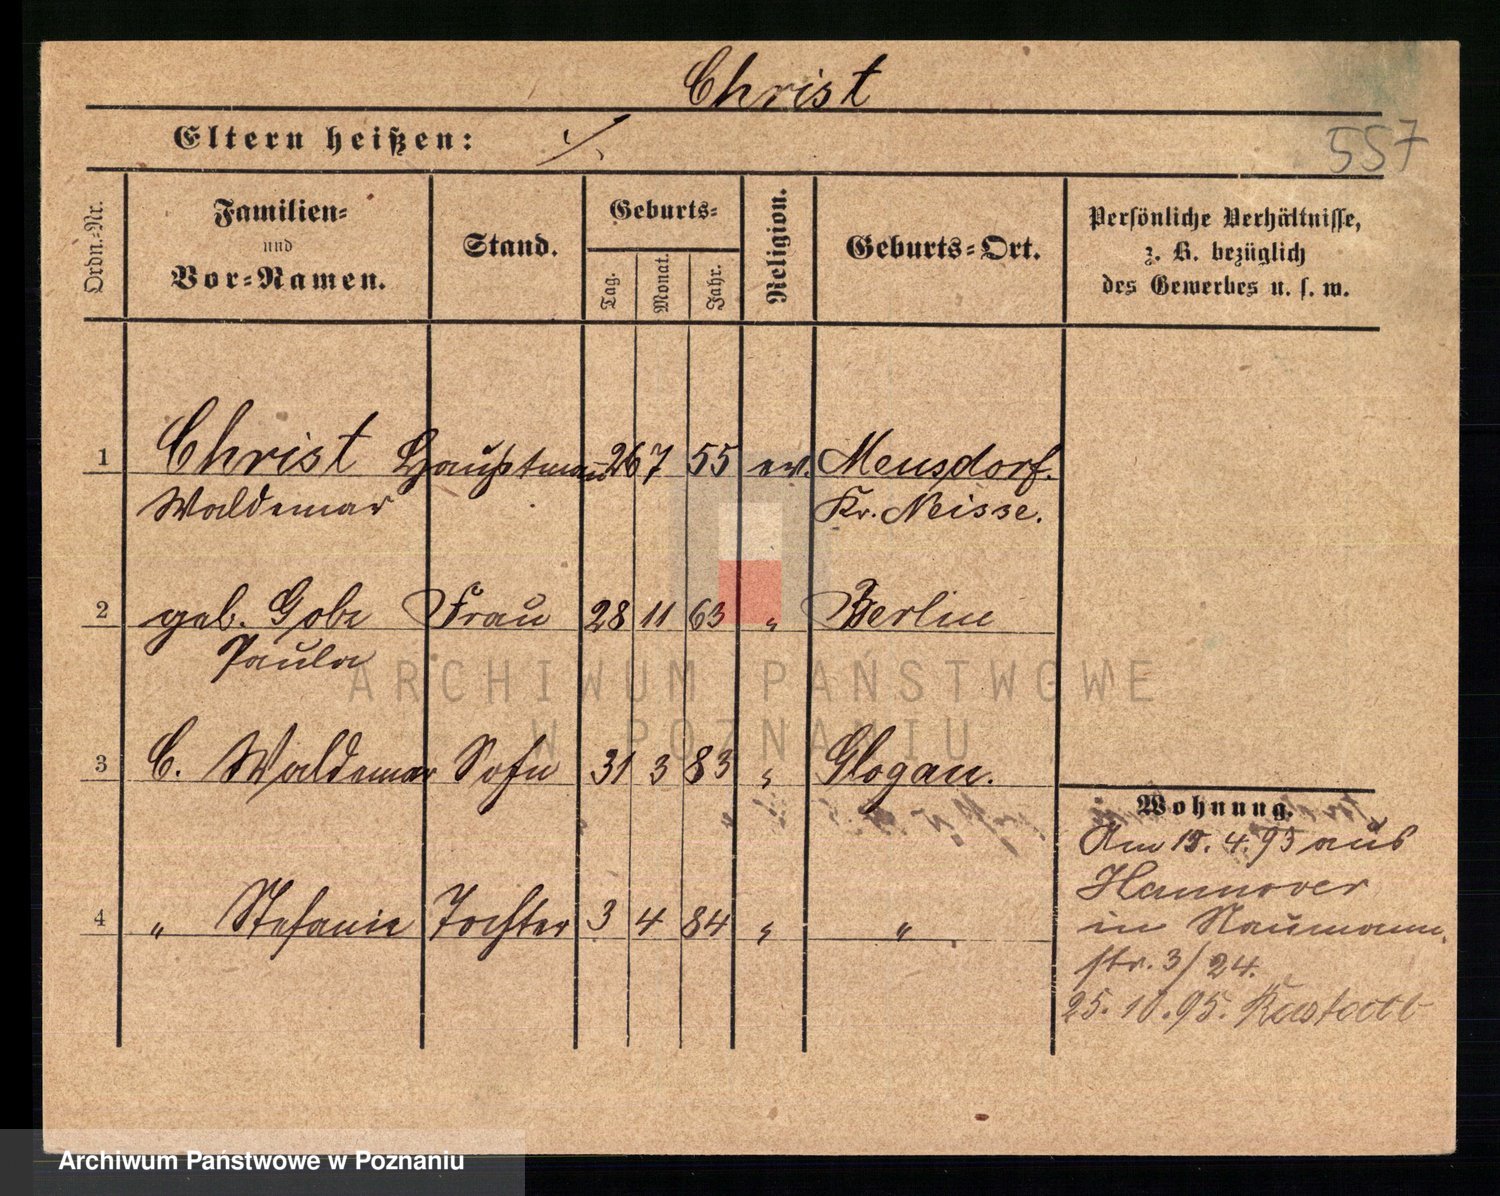 Christ
557
Eltern heißen: ./.
Ordn.-Nr.
Familien- und Vor-Namen.
Stand.
Geburts-
Tag. Monat. Jahr.
Religion.
Geburts-Ort.
Persönliche Verhältnisse,
z. B. bezüglich
des Gewerbes u. s. w.
1 Christ Hauptmann 26 7 55 ev. Mensdorf.
Waldemar Kr. Neisse.
2 geb. Gobe Frau 28 11 63 " Berlin
Paula
3 C. Waldemar Sohn 31 3 83 " Glogau.
4 " Stefanie Tochter 3 4 84 " "
Wohnung.
Am 15. 4. 95 aus
Hannover
in Naumann
str. 3/24.
25. 10. 95.
ARCHIWUM PAŃSTWOWE
W POZNANIU
Archiwum Państwowe w Poznaniu